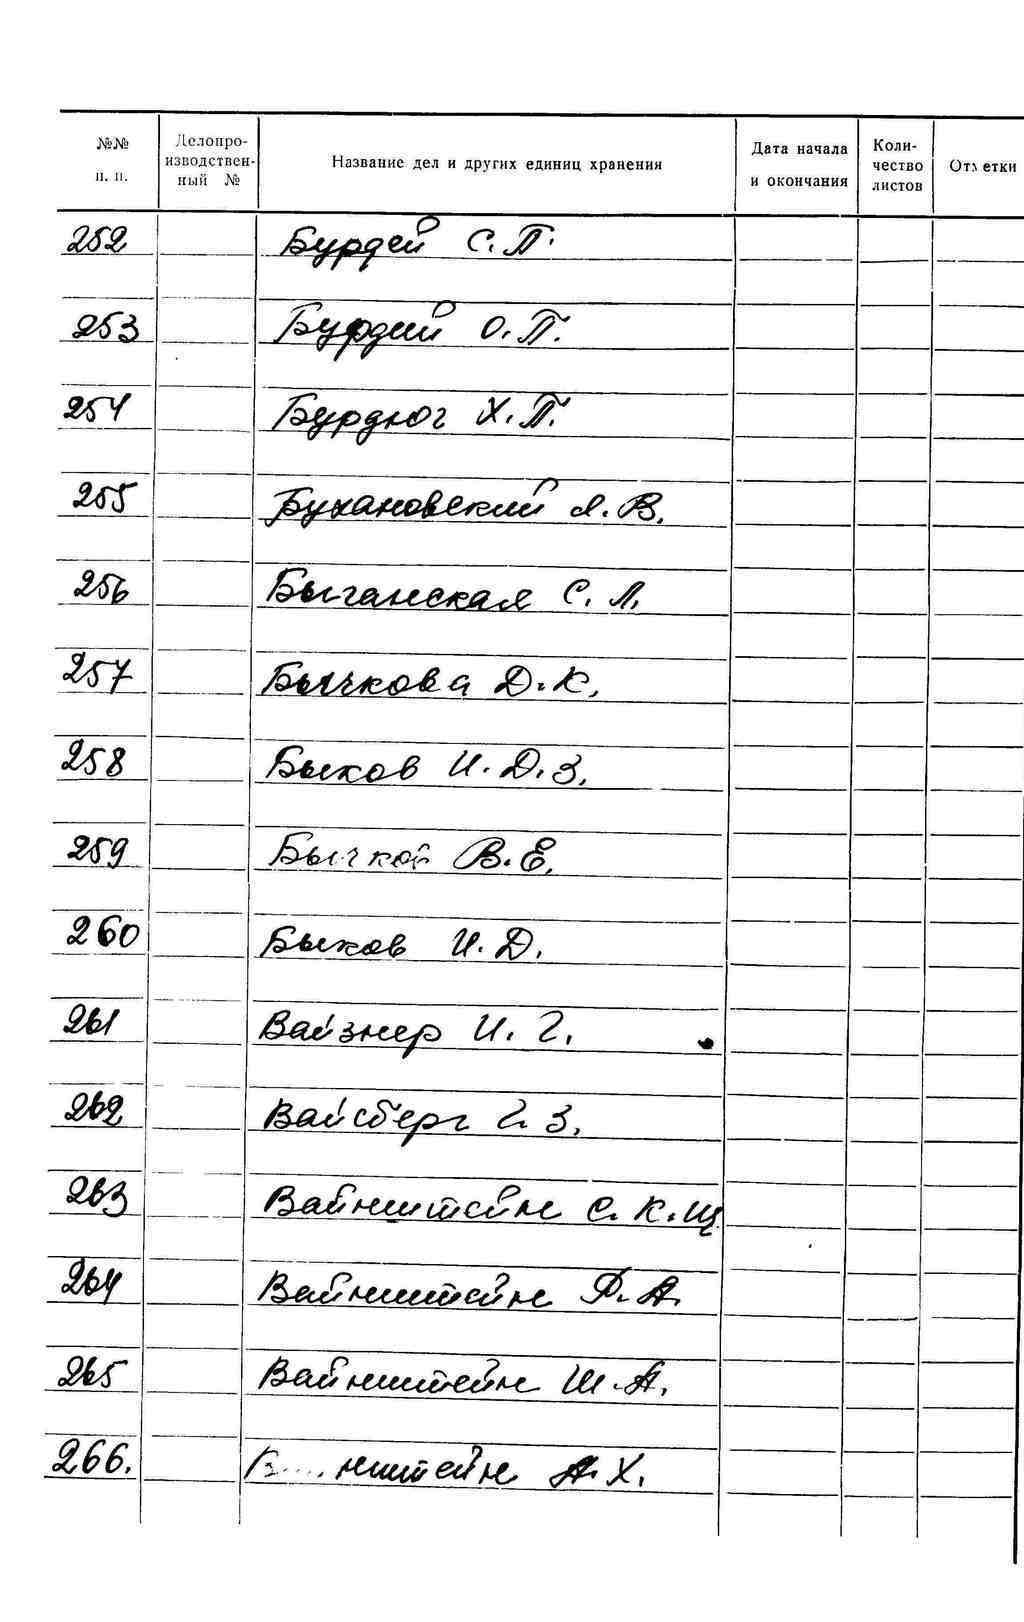 №№ п. п. Делопроизводственный № Название дел и других единиц хранения Дата начала и окончания Количество листов Отметки
252 Бурдей С. П.
253 Бурдей О. П.
254 Бурдюг Х. П.
255 Бухановский Л. В.
256 Быганская С. Л.
257 Бычкова Д. К.
258 Быков И. Д. З.
259 Бычков В. Е.
260 Быков И. Д.
261 Вайзнер И. Г.
262 Вайсберг Г. З.
263 Вайнштейн С. К. Щ
264 Вайнштейн Ф. А.
265 Вайнштейн Ш. А.
266. Вайнштейн А. Х.